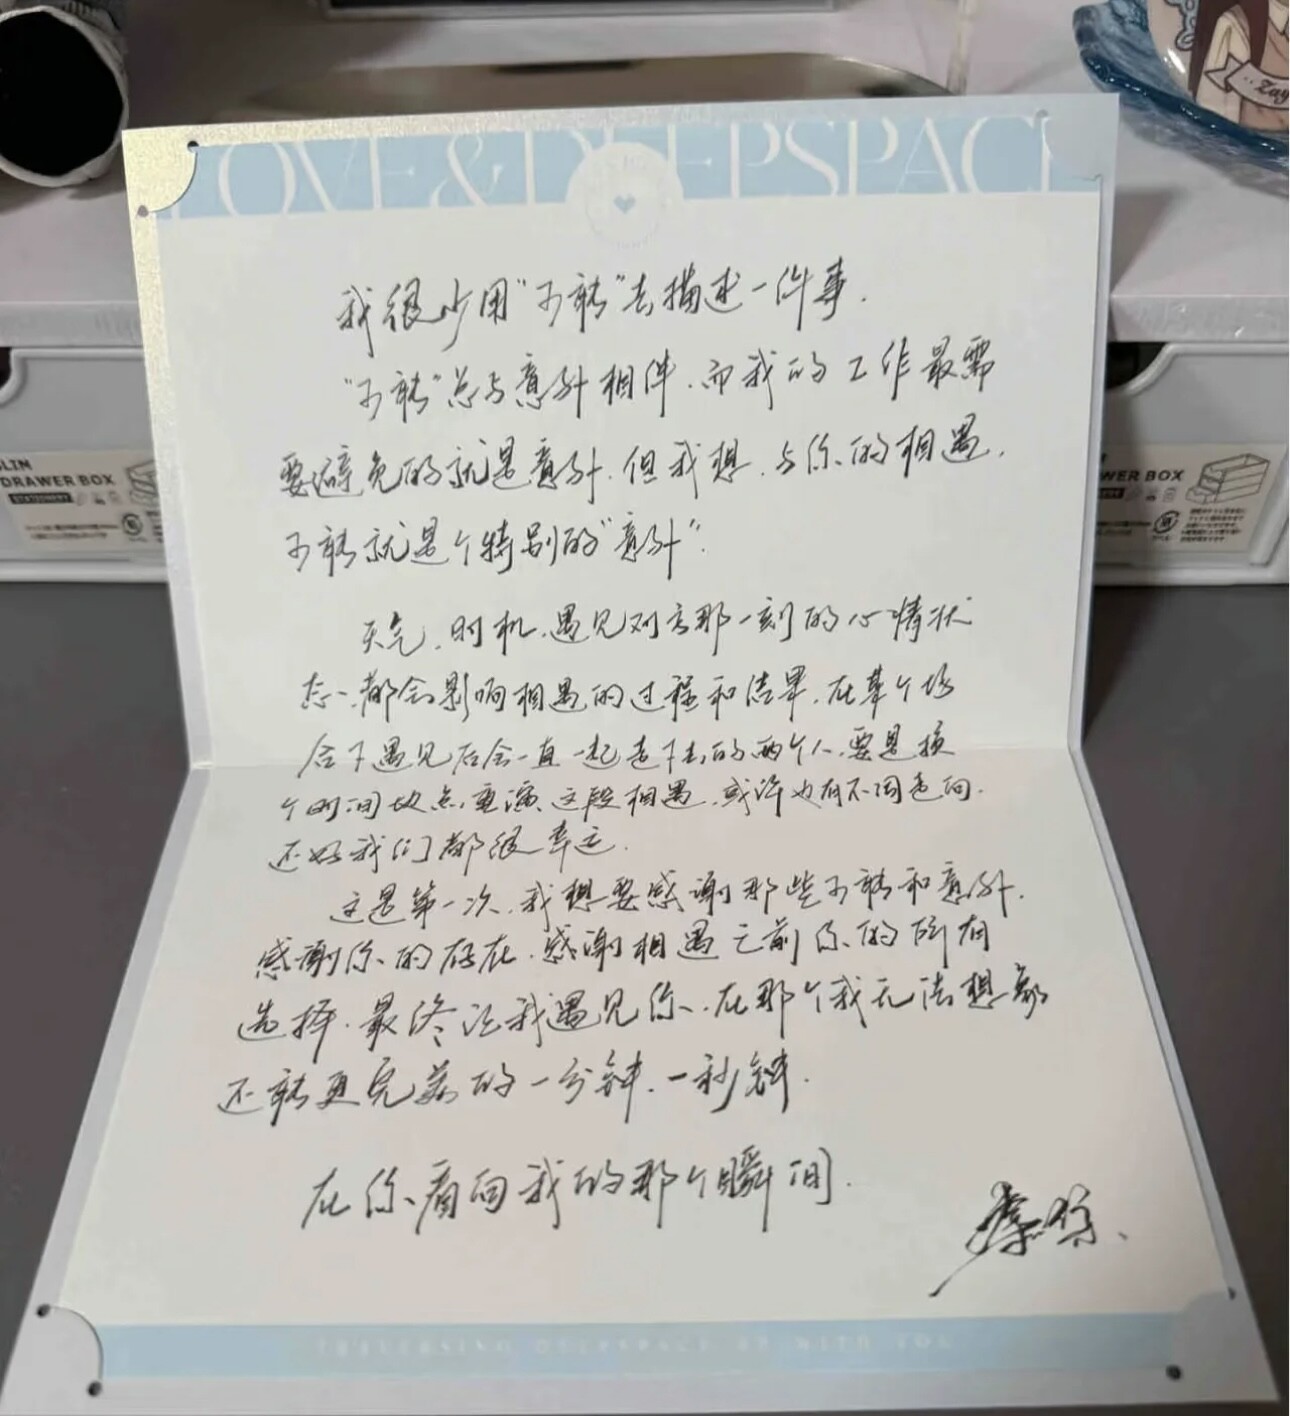 LOVE & DEEPSPACE
我很少用“可能”去描述一件事.
“可能”总与意外相伴.而我的工作最需
要避免的就是意外.但我想.与你的相遇.
可能就是个特别的“意外”.
天气.时机.遇见对方那一刻的心情状
态.都会影响相遇的过程和结果.在某个场
合下遇见后会一直一起走下去的两个人.要是换
个时间地点.重演这段相遇.或许也有不同走向.
还好我们都很幸运.
这是第一次.我想要感谢那些可能和意外.
感谢你的存在.感谢相遇之前你的所有
选择.最终让我遇见你.在那个我无法想象
还能更完美的一分钟.一秒钟.
在你看向我的那个瞬间.
黎深
DRAWER BOX
STATIONERY
WER BOX
Zay